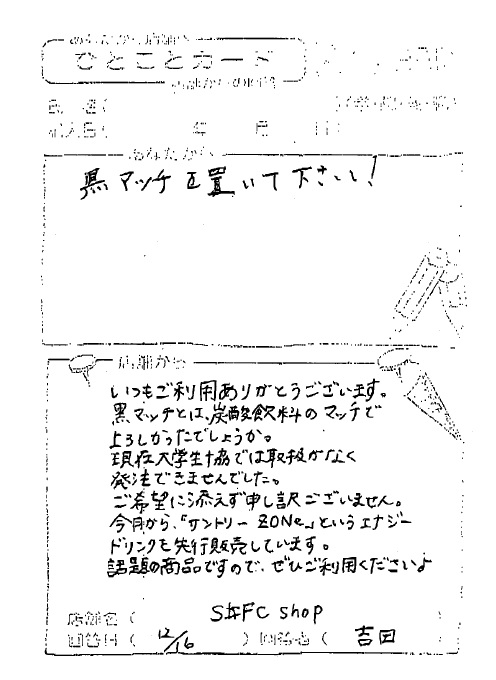 あなたから店舗へ
ひとことカード
店舗から
年 月 日
あなたから
黒マッチを置いて下さい!
店舗から
いつもご利用ありがとうございます。
黒マッチとは、炭酸飲料のマッチで
よろしかったでしょうか。
現在大学生協では取扱がなく
発注できませんでした。
ご希望に添えず申し訳ございません。
今月から、「サントリー ZONe」というエナジー
ドリンクを先行販売しています。
話題の商品ですので、ぜひご利用くださいよ
店舗名 ( FC shop
回答日 ( 12/16 ) 回答者 ( 吉田 )